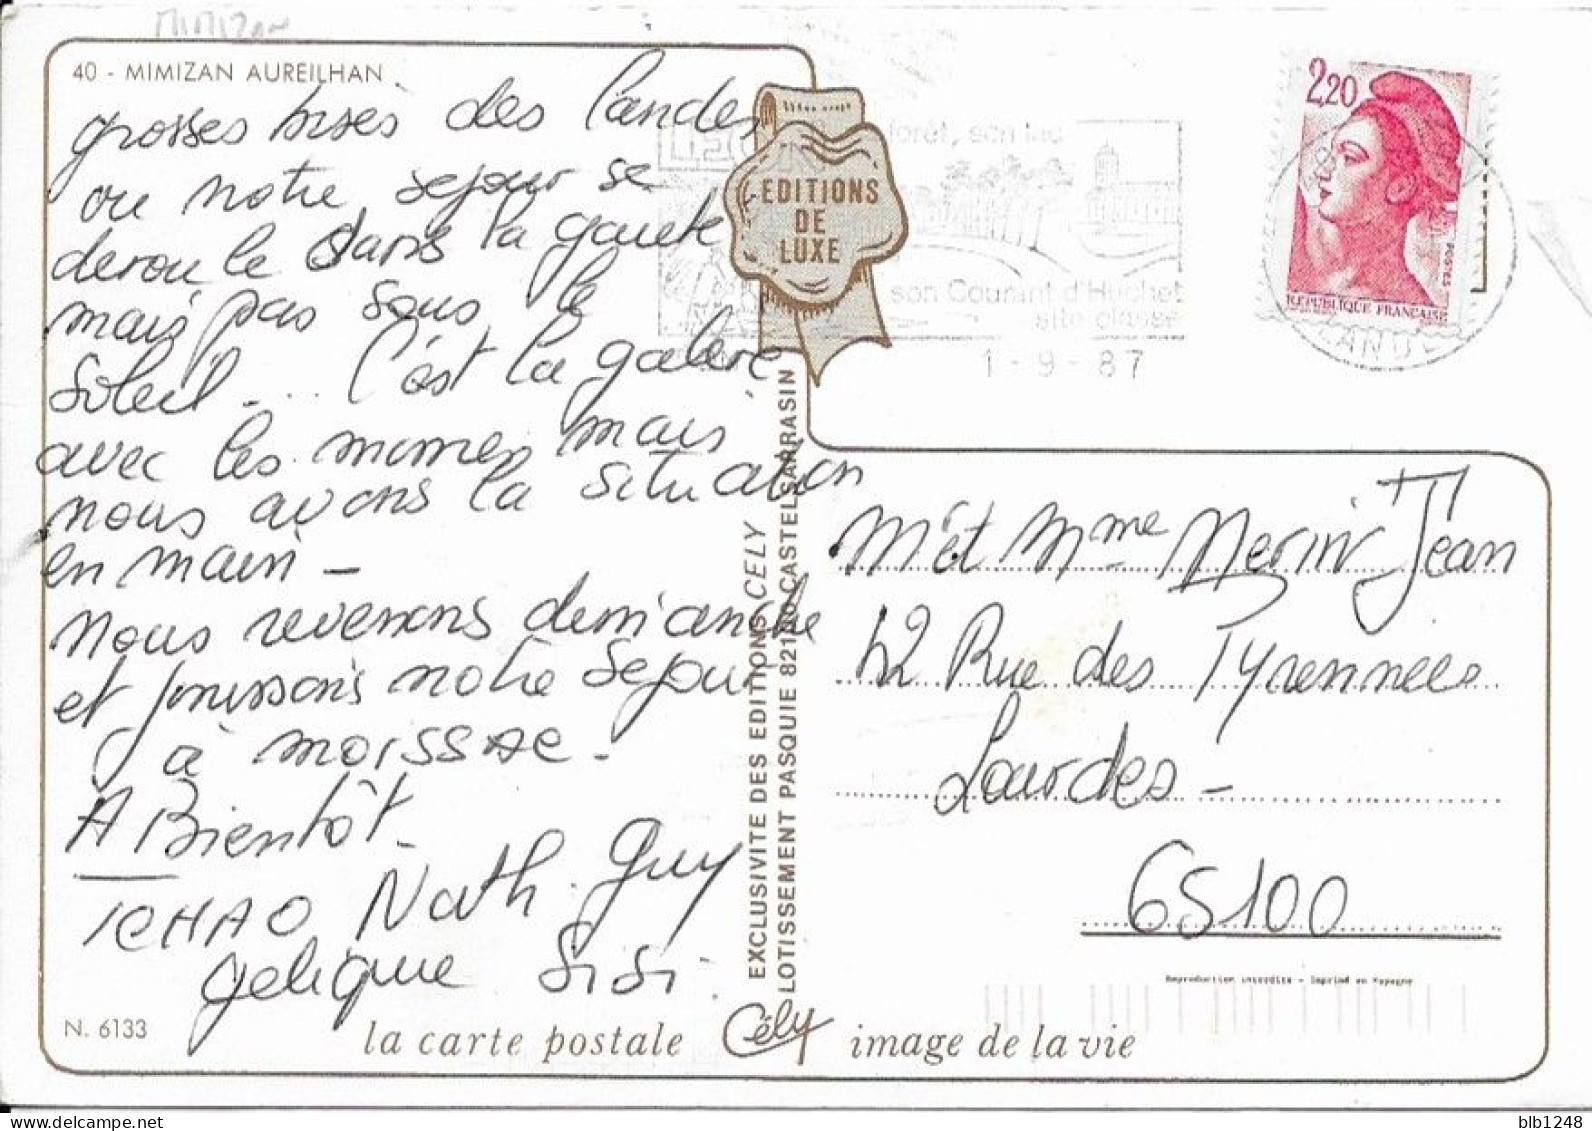 Mimizan
40 - MIMIZAN AUREILHAN
grosses bises des landes
ou notre sejour se
deroule dans la gaieté
mais pas sous le
soleil... C'est la galère
avec les momes mais
nous avons la situation
en main -
Nous revenons dimanche
et finissons notre sejour
à MOISSAC -
A Bientôt -
TCHAO Nath. Guy
gelique Sisi.
N. 6133
la carte postale
Cély
image de la vie
EDITIONS
DE
LUXE
EXCLUSIVITE DES EDITIONS CELY
LOTISSEMENT PASQUIE 82100 CASTELSARRASIN
forêt, son lac
son Courant d'Huchet
site classé
1-9-87
2,20
POSTES
REPUBLIQUE FRANÇAISE
LANDES
M et Mme Merin Jean
42 Rue des Pyrennees
Lourdes -
65100
Reproduction interdite - Imprimé en Espagne
blb1248